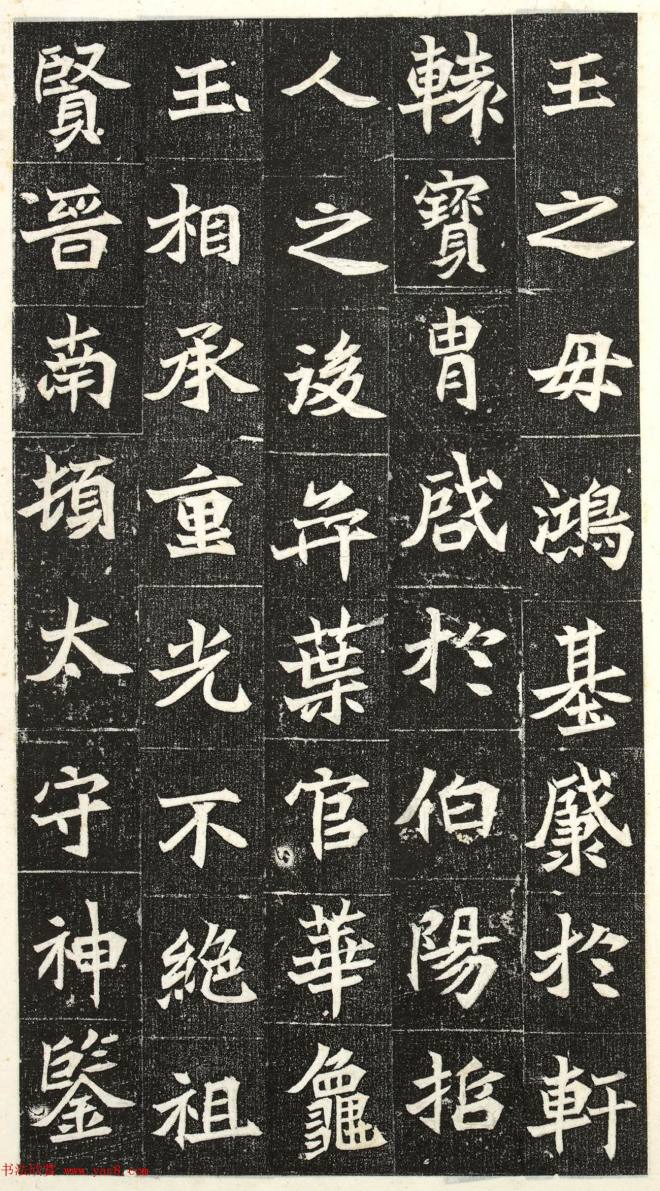 王之母鴻基於軒
轅寶胄啟於伯陽指
人之後弈葉官華龜
玉相承重光不絕祖
賢晉南頓太守神鑒
书法欣赏 www.yac8.com